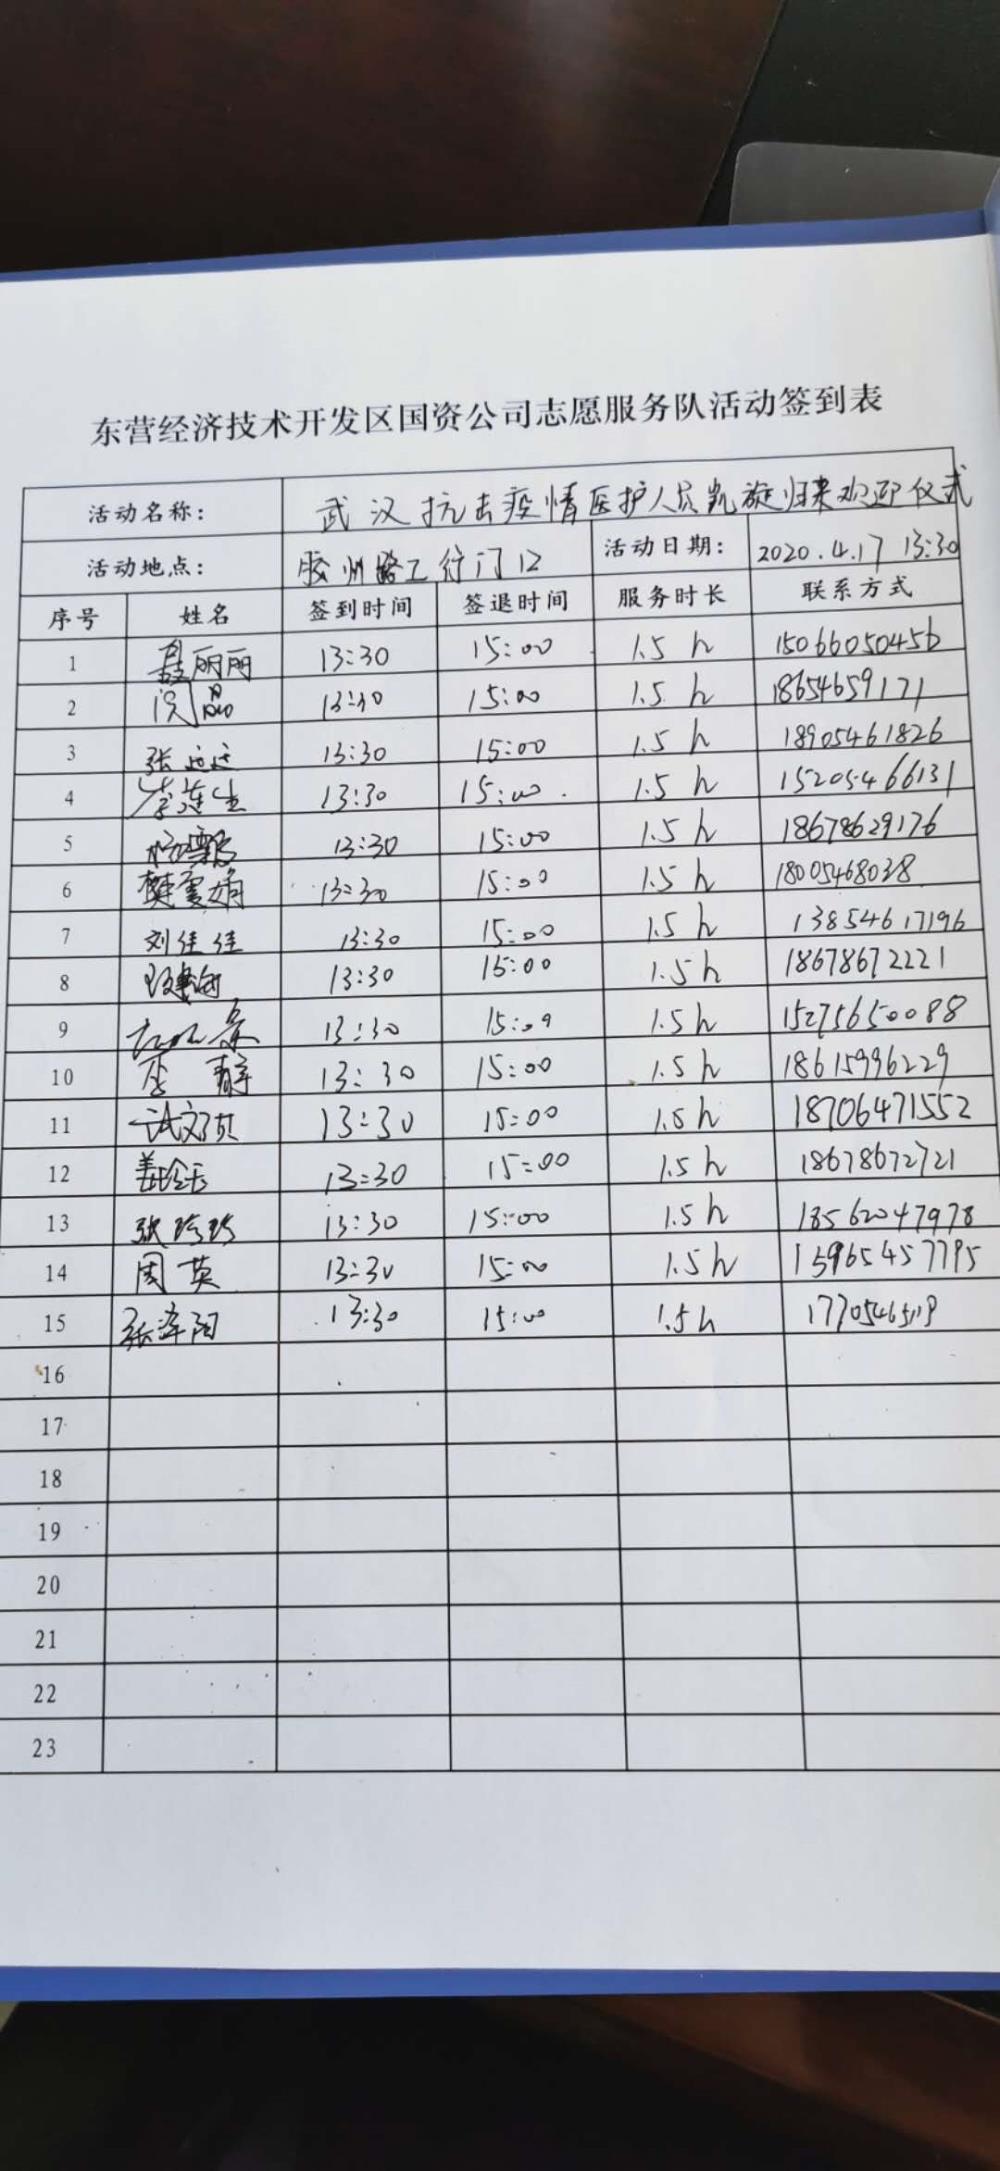 东营经济技术开发区国资公司志愿服务队活动签到表
活动名称: 武汉抗击疫情医护人员凯旋归来欢迎仪式
活动地点: 胶州路工行门口 活动日期: 2020.4.17 13:30
序号 姓名 签到时间 签退时间 服务时长 联系方式
1 聂丽丽 13:30 15:00 1.5 h 15066050456
2 13:30 15:00 1.5 h 18654659171
3 张 13:30 15:00 1.5 h 18905461826
4 李莲生 13:30 15:00 1.5 h 15205466131
5 13:30 15:00 1.5 h 18678629176
6 樊夏娟 13:30 15:00 1.5 h 18005468038
7 刘佳佳 13:30 15:00 1.5 h 13854617196
8 13:30 15:00 1.5 h 18678672221
9 13:30 15:00 1.5 h 15275650088
10 李静 13:30 15:00 1.5 h 18615996229
11 13:30 15:00 1.5 h 18706471552
12 13:30 15:00 1.5 h 18678672721
13 张玲玲 13:30 15:00 1.5 h 18562047978
14 周英 13:30 15:00 1.5 h
15 张泽阳 13:30 15:00 1.5 h
16
17
18
19
20
21
22
23